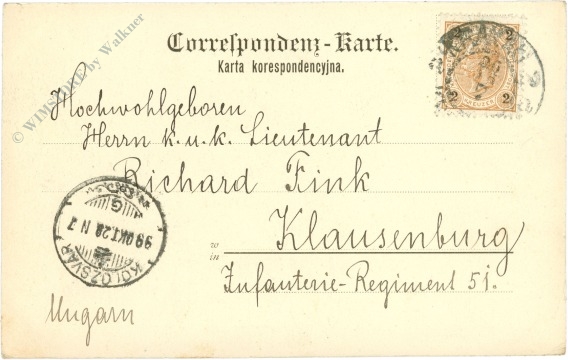 © WIMSTORE by Walkner
Correspondenz-Karte.
Karta korespondencyjna.
2
2 KREUZER 2
Hochwohlgeboren
Herrn k. u. k. Lieutenant
Richard Fink
w
in
Klausenburg
Infanterie-Regiment 51.
KOLOZSVÁR
99 OKT. 28 N 7
Ungarn